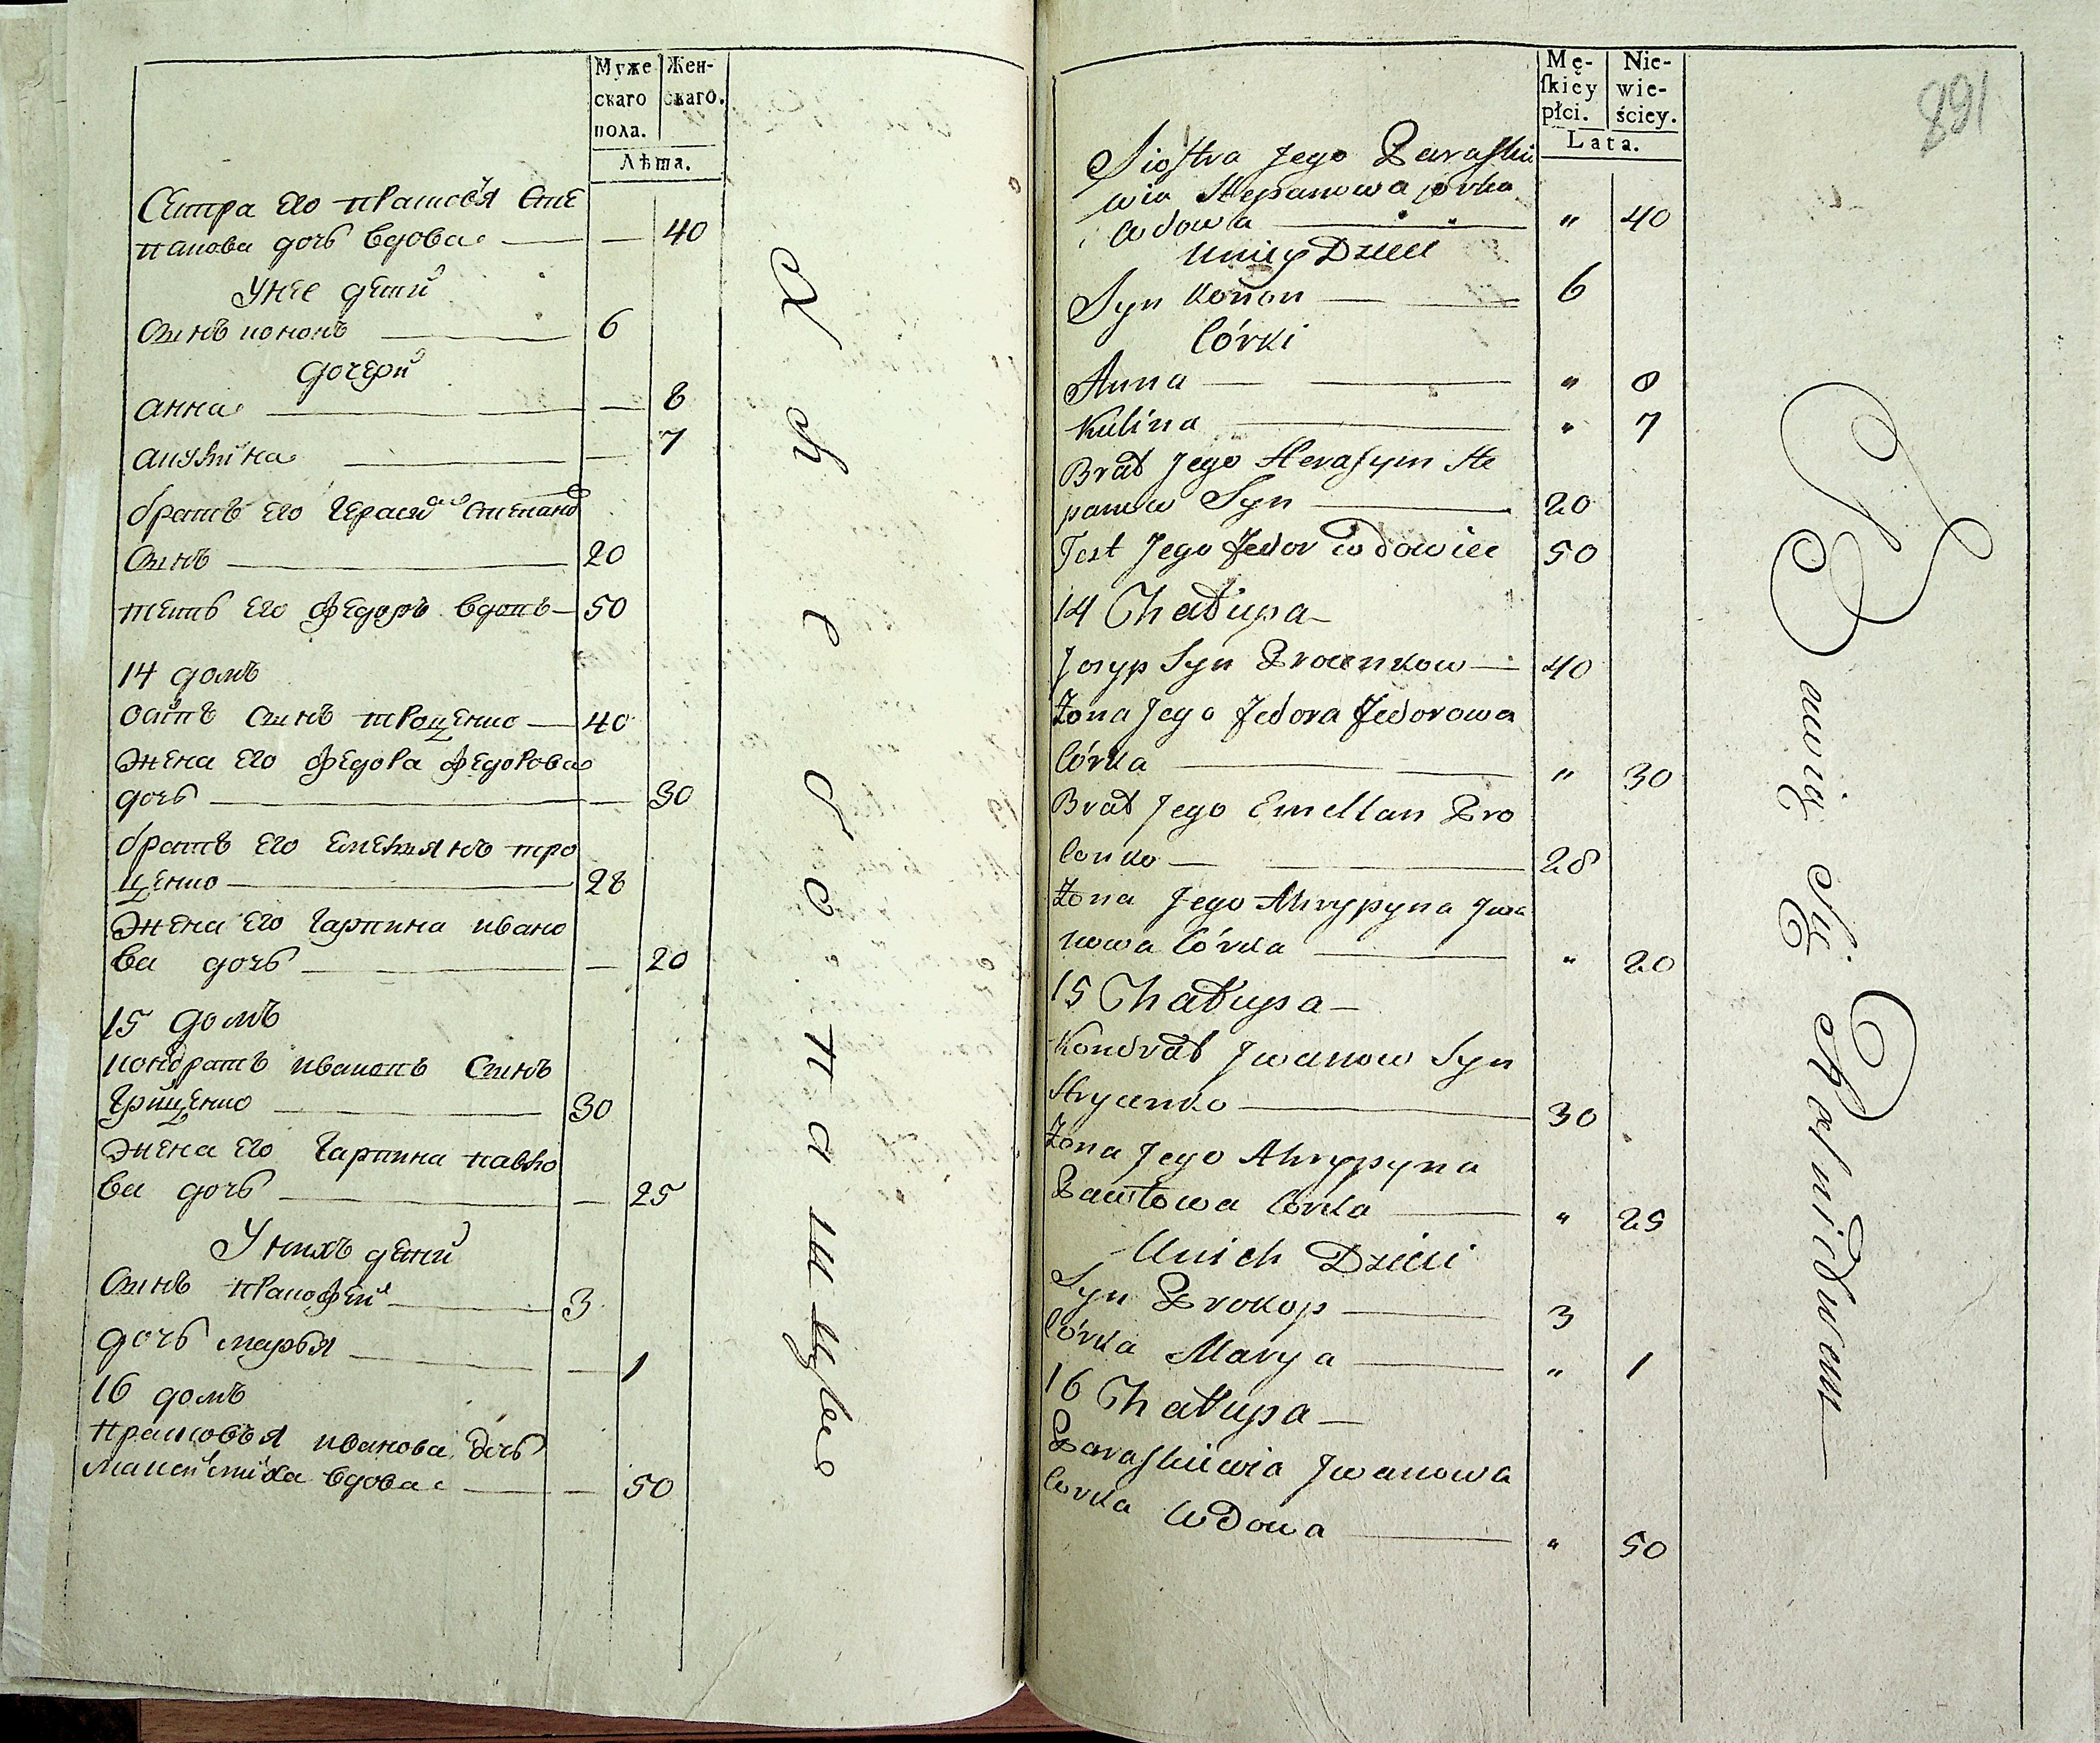 Муже
скаго
пола.
Жен-
скаго.
Лѣта.
Сестра Его прасковія Сте
панова дочь вдова — — 40
У нее дети
Сынъ кононъ — 6
дочери
анна — — 8
акулина — — 7
братъ Его Герасимъ Степановъ
Сынъ — 20
тесть Его Федоръ вдовъ — 50
14 домъ
осипъ Сынъ троценко — 40
жена Его Федора Федорова
дочь — — 30
братъ Его Емельянъ тро
ценко — 28
жена Его Гарпина ивано
ва дочь — — 20
15 домъ
кондратъ ивановъ Сынъ
Грищенко — 30
жена Его Гарпина павло
ва дочь — — 25
У нихъ дети
Сынъ прокофей — 3
дочь марья — — 1
16 домъ
прасковья иванова дочь
вдова — — 50
Mę-
ſkiey
płci.
Nie-
wie-
ściey.
Lata.
891
Siostra Jego Paraski
wia Stepanowa córka
wdowa — " 40
U niey Dzieci
Syn Konon — 6
Córki
Anna — " 8
Kulina — " 7
Brat Jego Herasym Ste
panow Syn — 20
Test Jego Fedor wdowiec 50
14 Chałupa —
Josyp Syn Procenkow — 40
Żona Jego Fedora Fedorowa
Córka — " 30
Brat Jego Emelian Pro
cenko — 28
Żona Jego Ahrypyna Jwa
nowa Córka — " 20
15 Chałupa —
Kondrat Jwanow Syn
Hrycenko — 30
Żona Jego Ahrypyna
Pawłowa Córka — " 25
U nich Dzieci
Syn Prokop — 3
Córka Marya — " 1
16 Chałupa —
Paraskiewia Jwanowa
Córka Wdowa — " 50
Bawią się Rolnictwem —